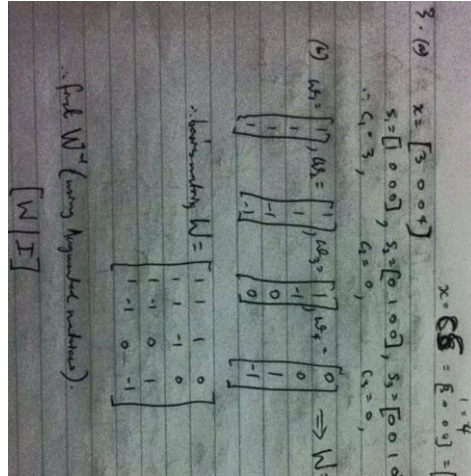 1×4
x = = [3 0 0 4] = [
3. (a) x = [3 0 0 4]
s₁ = [1 0 0 0], s₂ = [0 1 0 0], s₃ = [0 0 1 0
∴ c₁ = 3, c₂ = 0, c₃ = 0,
(b) w₁ = [1 1 1 1], w₂ = [1 1 -1 -1], w₃ = [1 -1 0 0], w₄ = [0 0 1 -1] ⇒ W =
∴ basis matrix W =
[1 1 1 0
1 1 -1 0
1 -1 0 1
1 -1 0 -1]
∴ find W⁻¹ (using Augmented matrices).
[W | I]